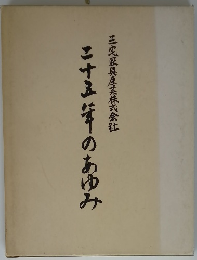 三宅農具産業株式会社
二十五年のあゆみ